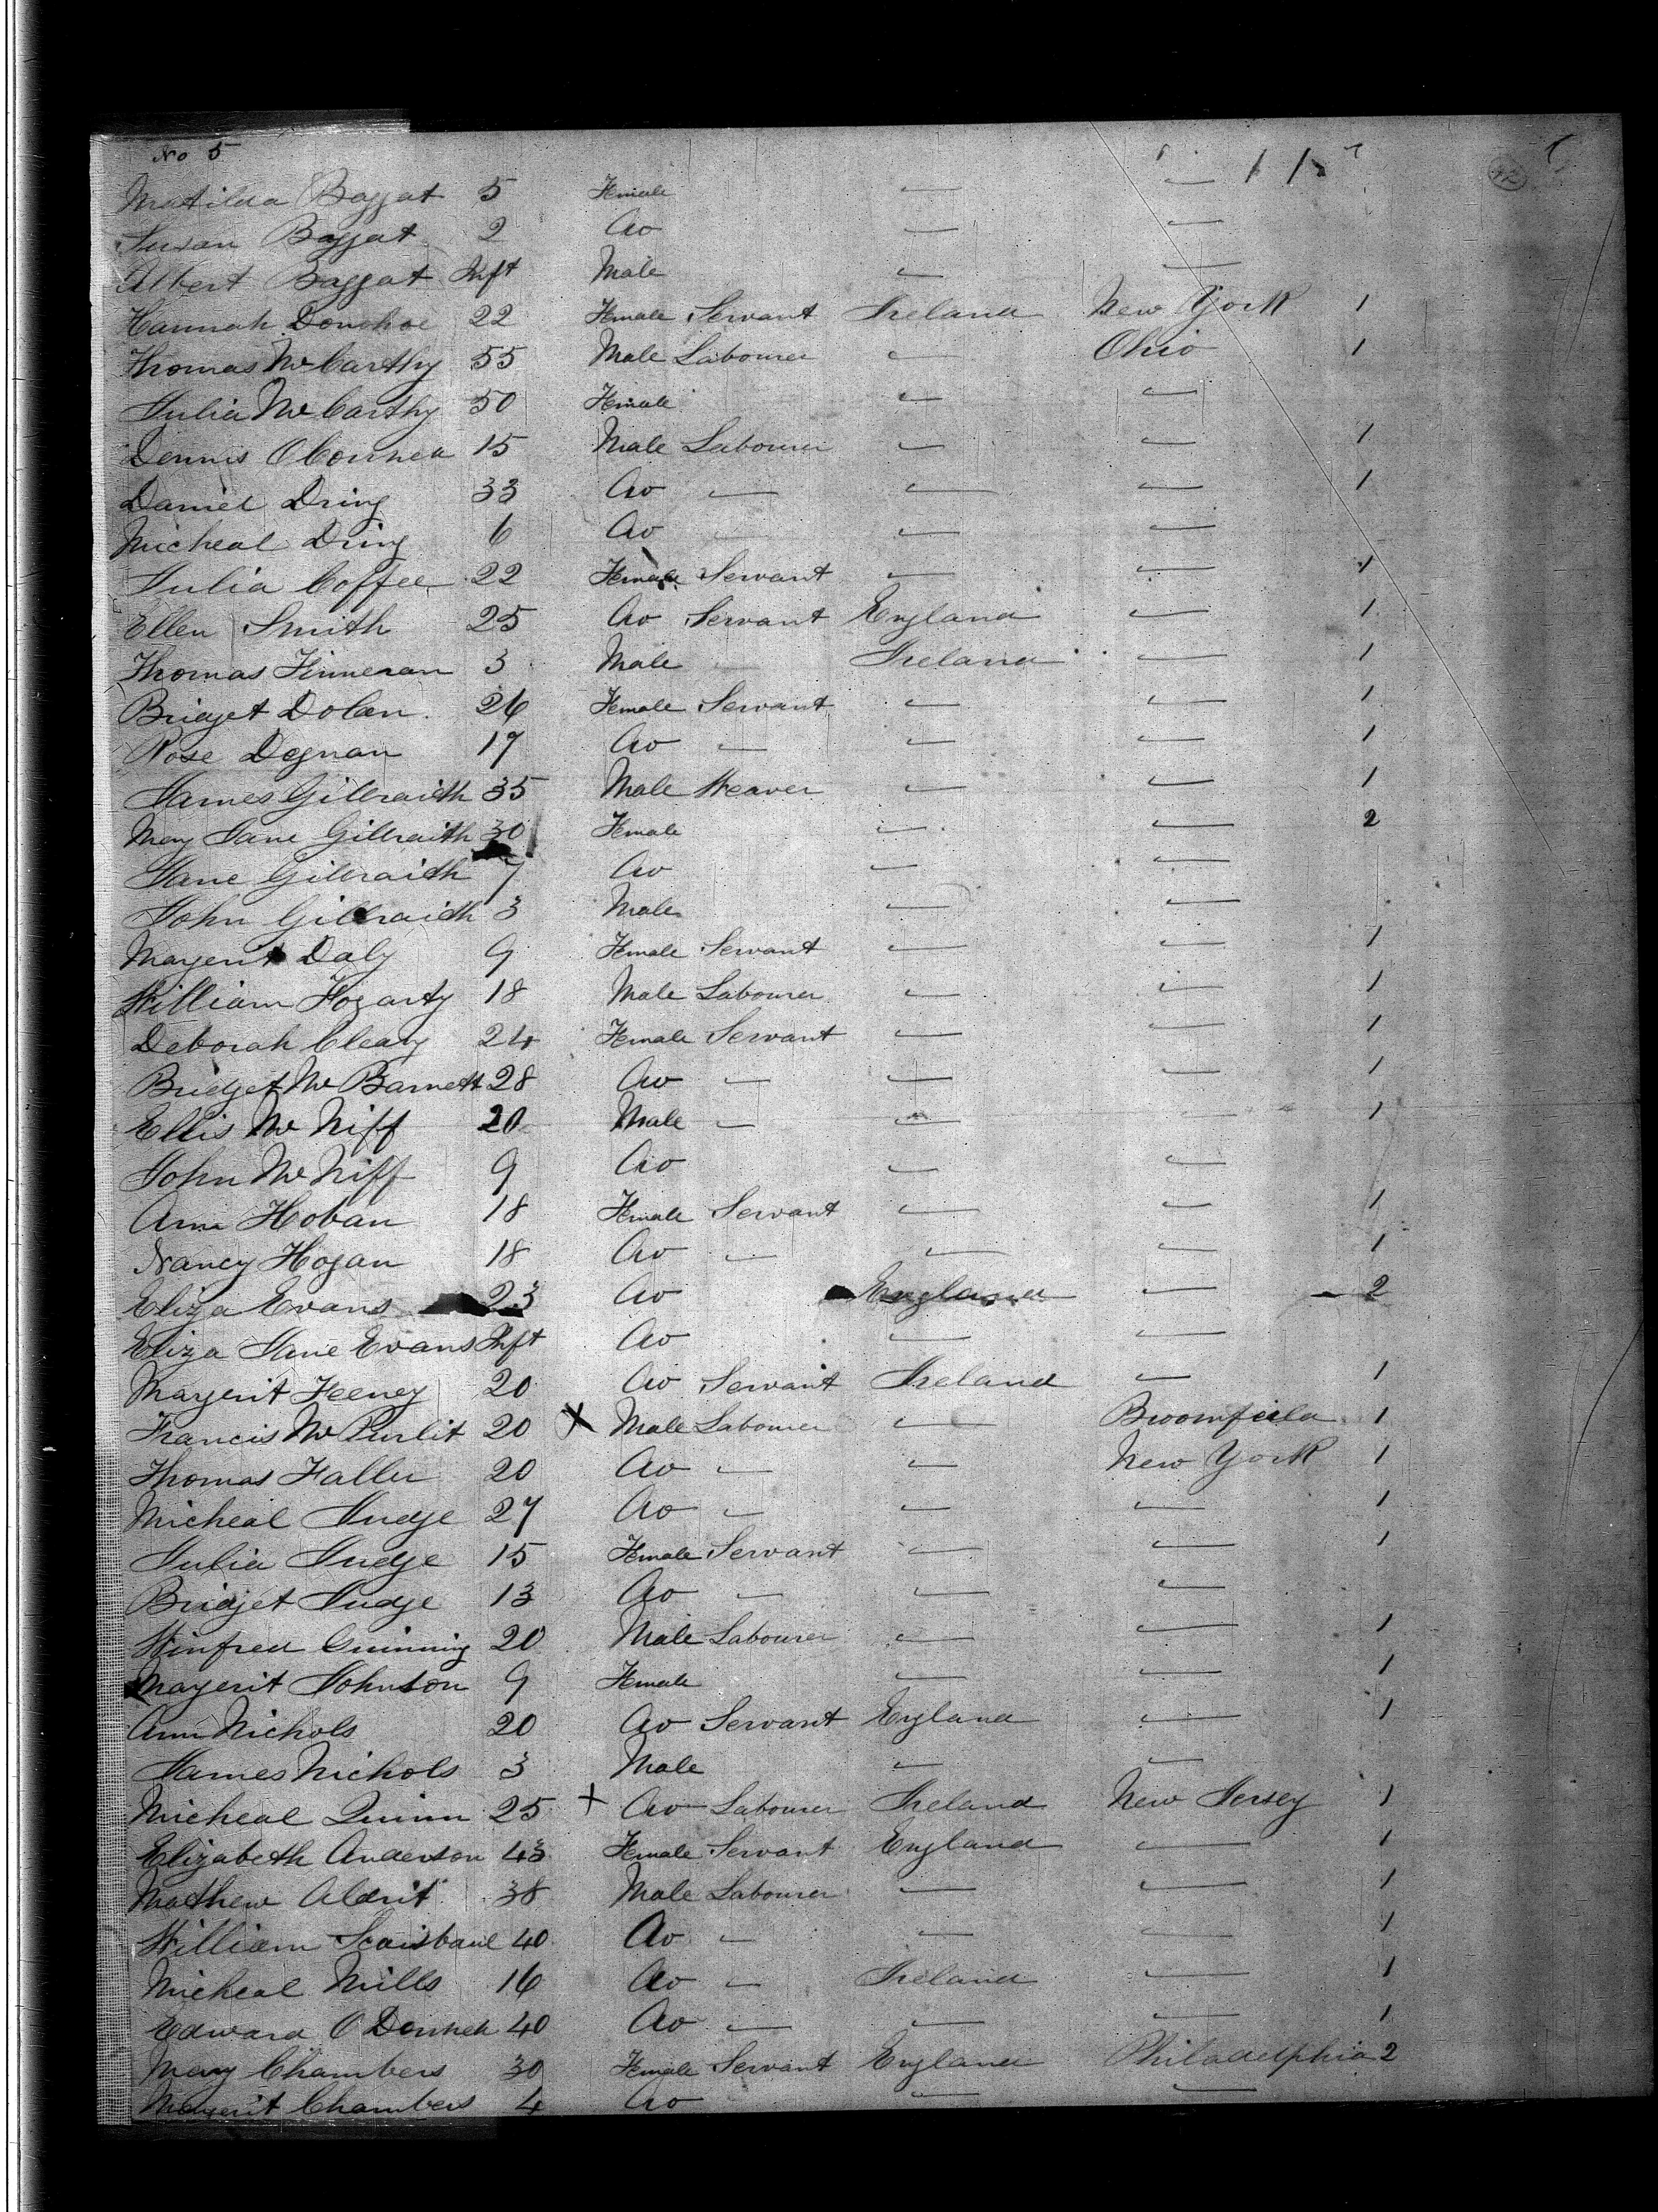 No 5
42
Matilda Baggat 5 Female — —
Susan Baggat 2 do — —
Albert Baggat Inft Male — —
Hannah Donohoe 22 Female Servant Ireland New York 1
Thomas McCarthy 55 Male Labourer — Ohio 1
Julia McCarthy 50 Female — —
Dennis OConnell 15 Male Labourer — — 1
Daniel Dring 33 do — — — 1
Micheal Dring 6 do — — —
Julia Coffee 22 Female Servant — — 1
Ellen Smith 25 do Servant England — 1
Thomas Finneran 3 Male — Ireland — 1
Bridget Dolan 26 Female Servant — — 1
Rose Degnan 17 do — — — 1
James Gillraith 35 Male Weaver — — 1
Mary Jane Gillraith 30 Female — — 2
Jane Gillraith 7 do — —
John Gillraith 3 Male — —
Margerit Daly 9 Female Servant — — 1
William Fogarty 18 Male Labourer — — 1
Deborah Cleary 24 Female Servant — — 1
Bridget McBarnett 28 do — — — 1
Ellis McNiff 20 Male — — — 1
John McNiff 9 do — —
Ann Hoban 18 Female Servant — — 1
Nancy Hogan 18 do — — — 1
Eliza Evans 23 do England — 2
Eliza Jane Evans Inft do — —
Margerit Feeney 20 do Servant Ireland — 1
Francis McPurlit 20 X Male Labourer — Broomfeild 1
Thomas Faller 20 do — — New York 1
Micheal Judge 27 do — — — 1
Julia Judge 15 Female Servant — — 1
Bridget Judge 13 do — — —
Winfred Guinning 20 Male Labourer — — 1
Margerit Johnson 9 Female — — 1
Ann Nichols 20 do Servant England — 1
James Nichols 3 Male — —
Micheal Quinn 25 + do Labourer Ireland New Jersey 1
Elizabeth Anderson 43 Female Servant England — 1
Mathew Aldrit 38 Male Labourer — — 1
William 40 do — — — 1
Micheal Mills 16 do — Ireland — 1
Edward ODonnell 40 do — — — 1
Mary Chambers 30 Female Servant England Philadelphia 2
Margerit Chambers 4 do — —